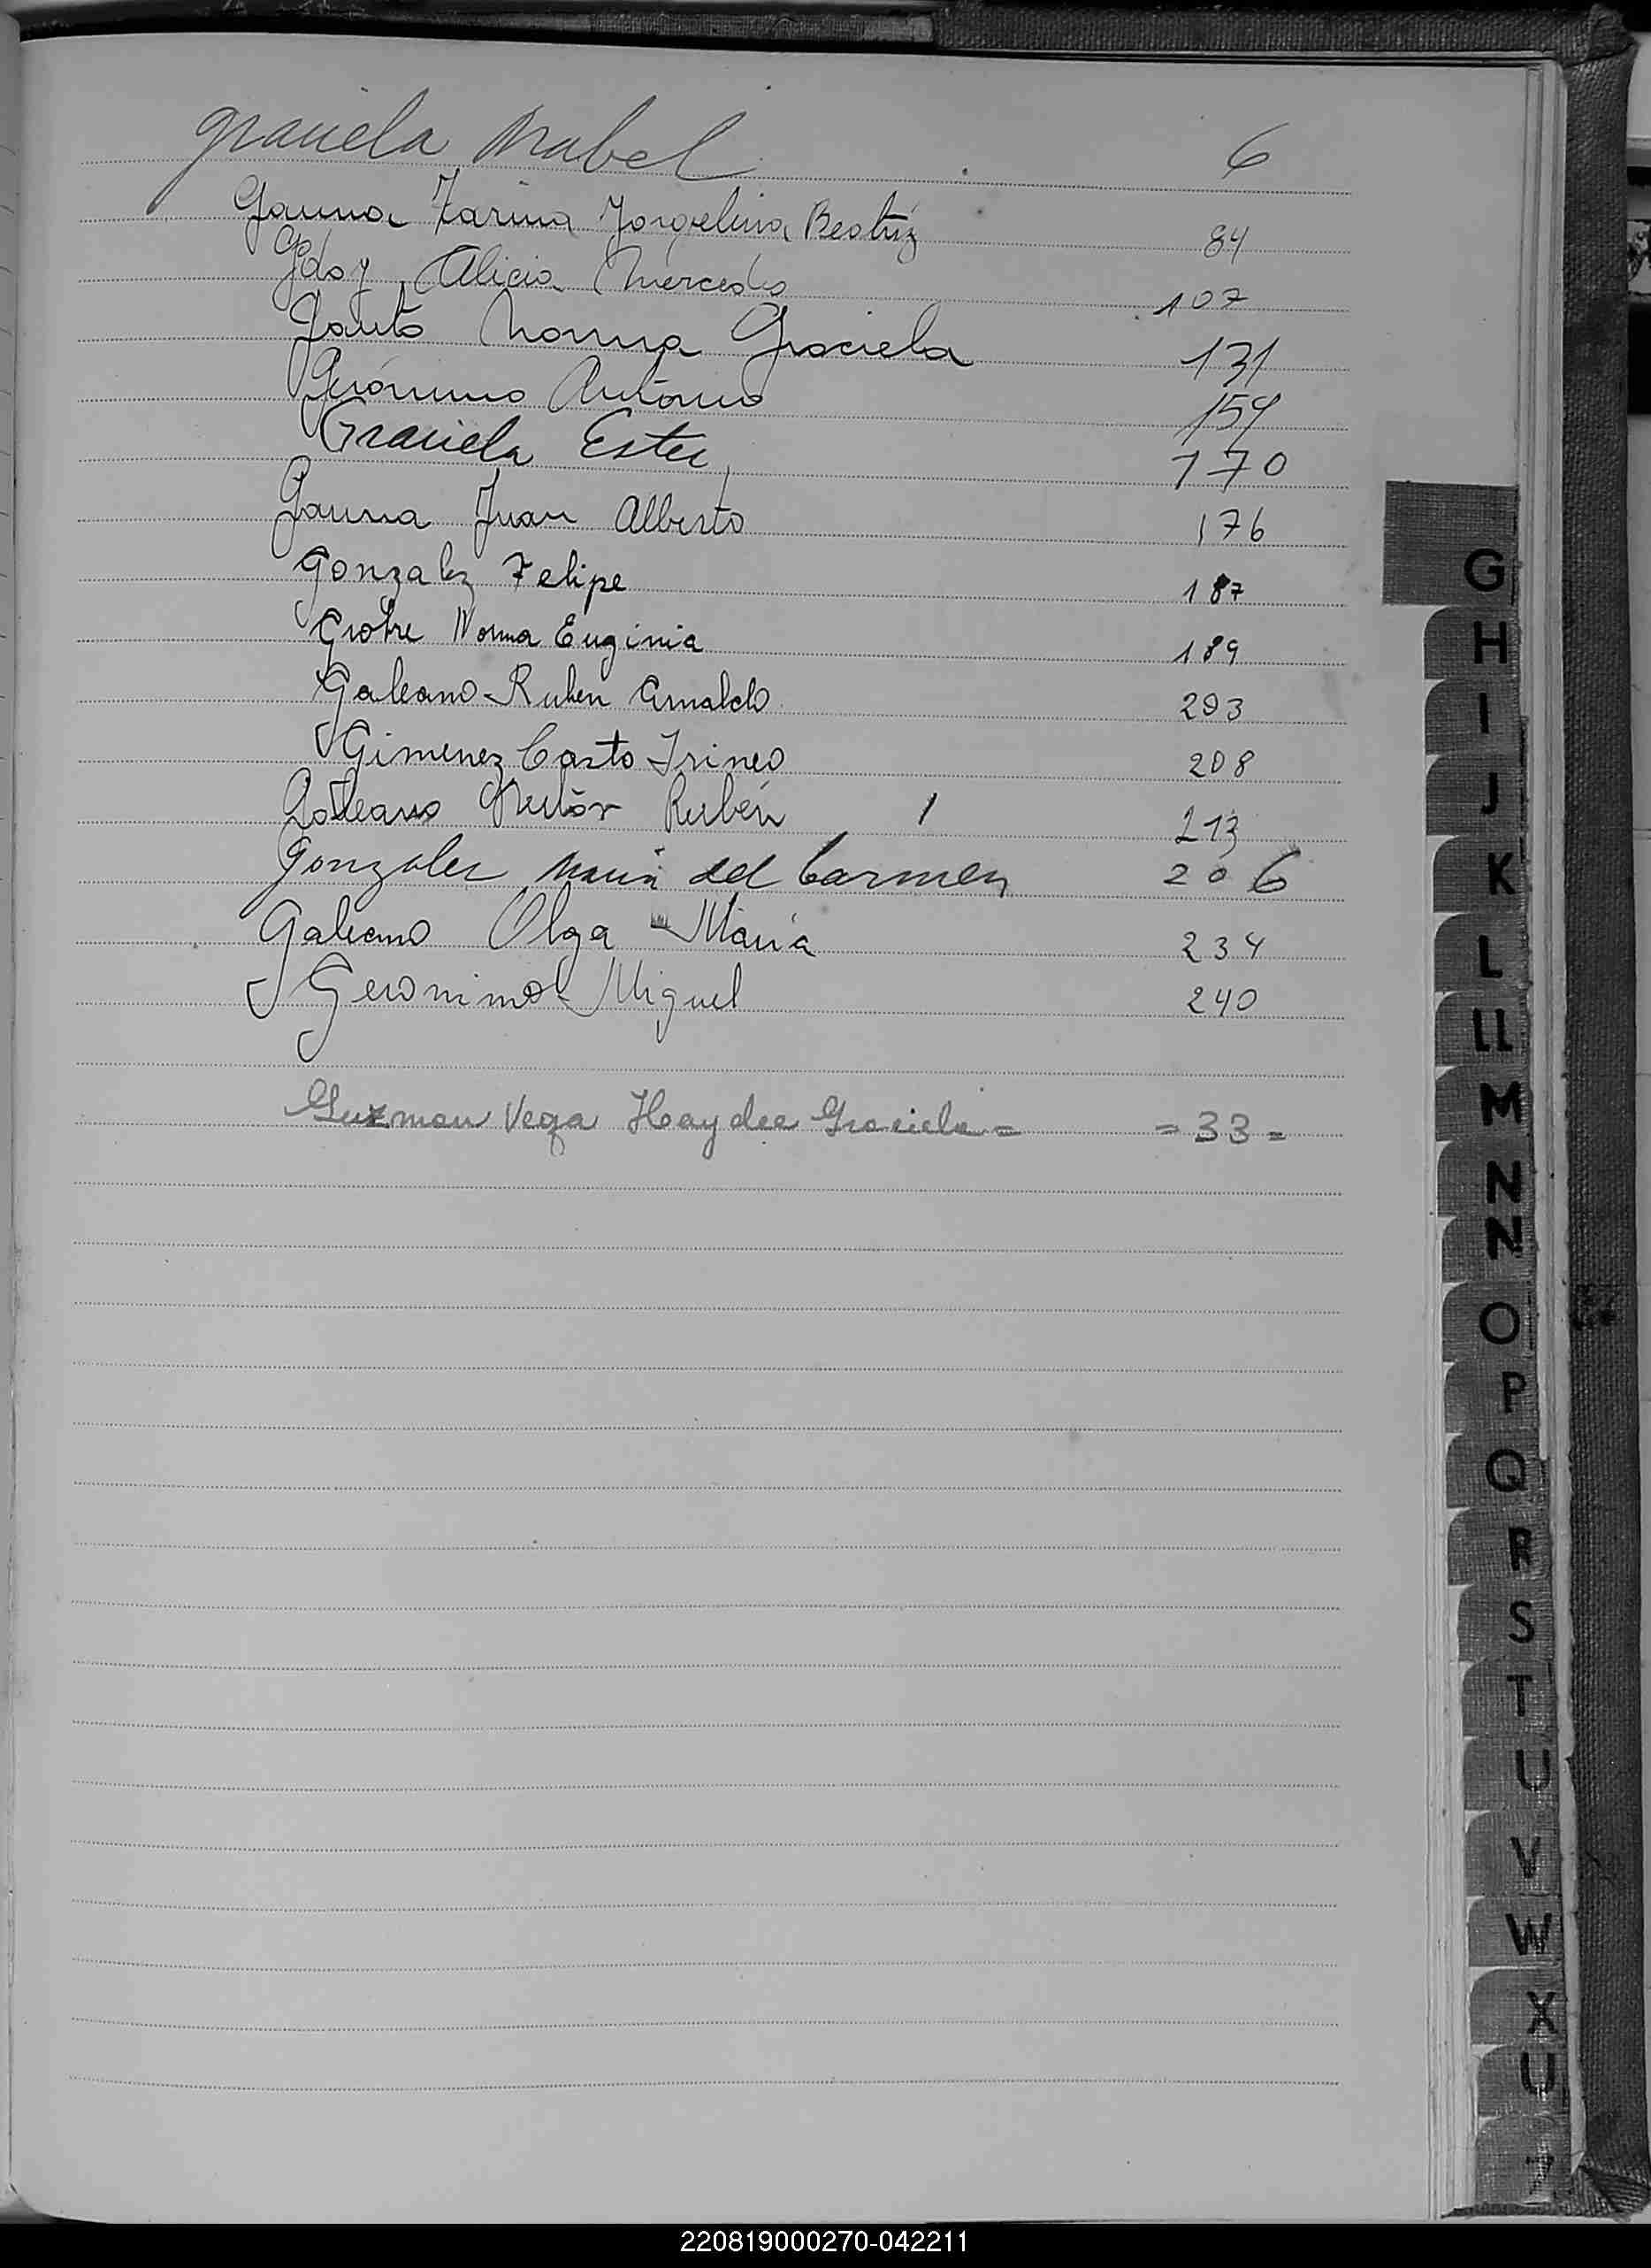 Graciela Mabel 6
Gauna Karina Jorgelina Beatriz 84
Gdoy Alicia Mercedes 107
Gauto Norma Graciela 131
Gerónimo Antonio 159
Graciela Ester 170
Gauna Juan Alberto 176
Gonzalez Felipe 187
Norma Euginia 189
Galeano Ruben Arnaldo 203
Gimenez Casto Irineo 208
Galeano Hector Rubén 213
Gonzalez Maria del Carmen 206
Galeano Olga María 234
Geronimo Miguel 240
Guzman Vega Haydee Graciela = = 33 =
G
H
I
J
K
L
LL
M
N
N
O
P
Q
R
S
T
U
V
W
X
220819000270-042211